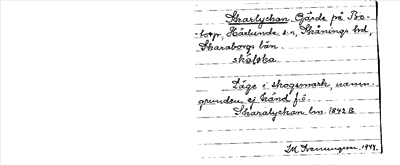 Skarlyckan. Gärde på Bo-
torp, Härlunda s:n, Skånings hd,
Skaraborgs län.
skáḷəka
Läge i skogsmark, namn-
grunden ej känd f.ö.
Skaralyckan lm. 1842 B
1944.